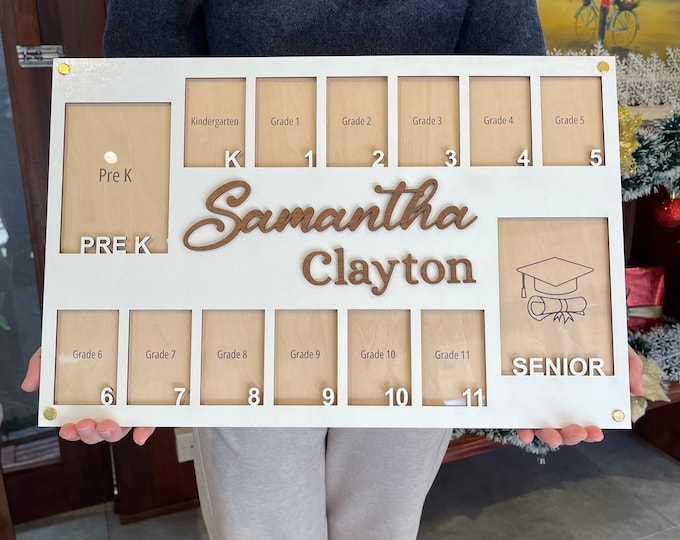 Pre K
PRE K
Kindergarten
K
Grade 1
1
Grade 2
2
Grade 3
3
Grade 4
4
Grade 5
5
Samantha
Clayton
Grade 6
6
Grade 7
7
Grade 8
8
Grade 9
9
Grade 10
10
Grade 11
11
SENIOR